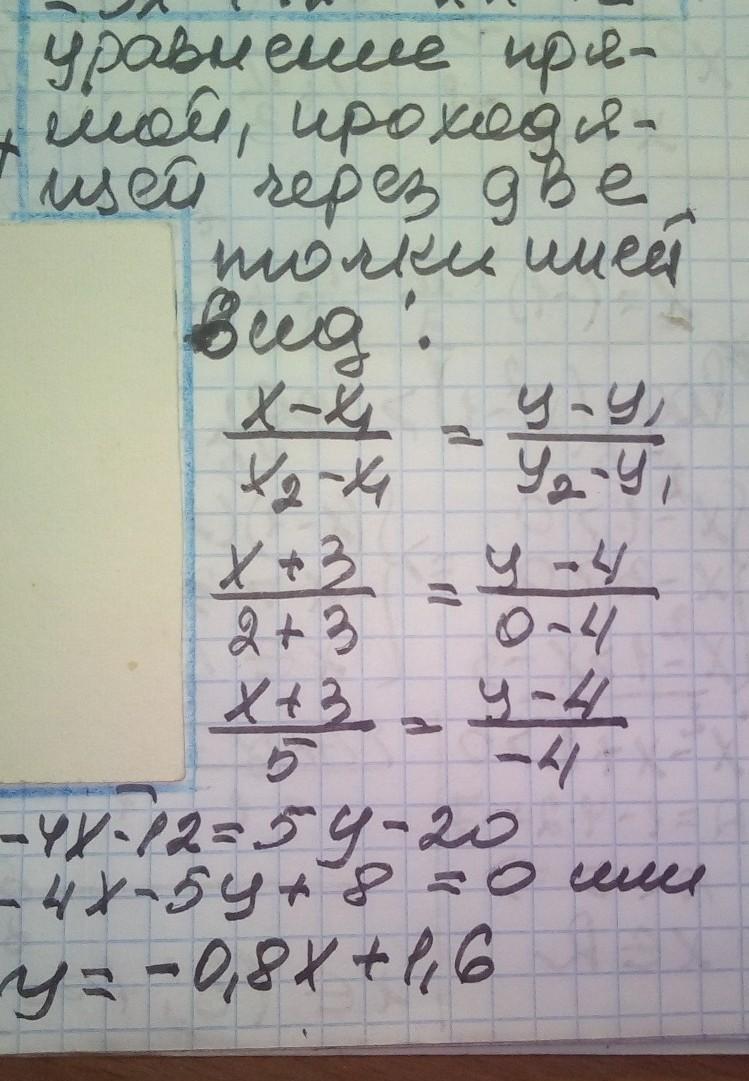 уравнение пря-
мой, проходя-
щей через две
точки имеет
вид:
x-x₁/x₂-x₁ = y-y₁/y₂-y₁
x+3/2+3 = y-4/0-4
x+3/5 = y-4/-4
-4x-12=5y-20
-4x-5y+8=0 или
y=-0,8x+1,6